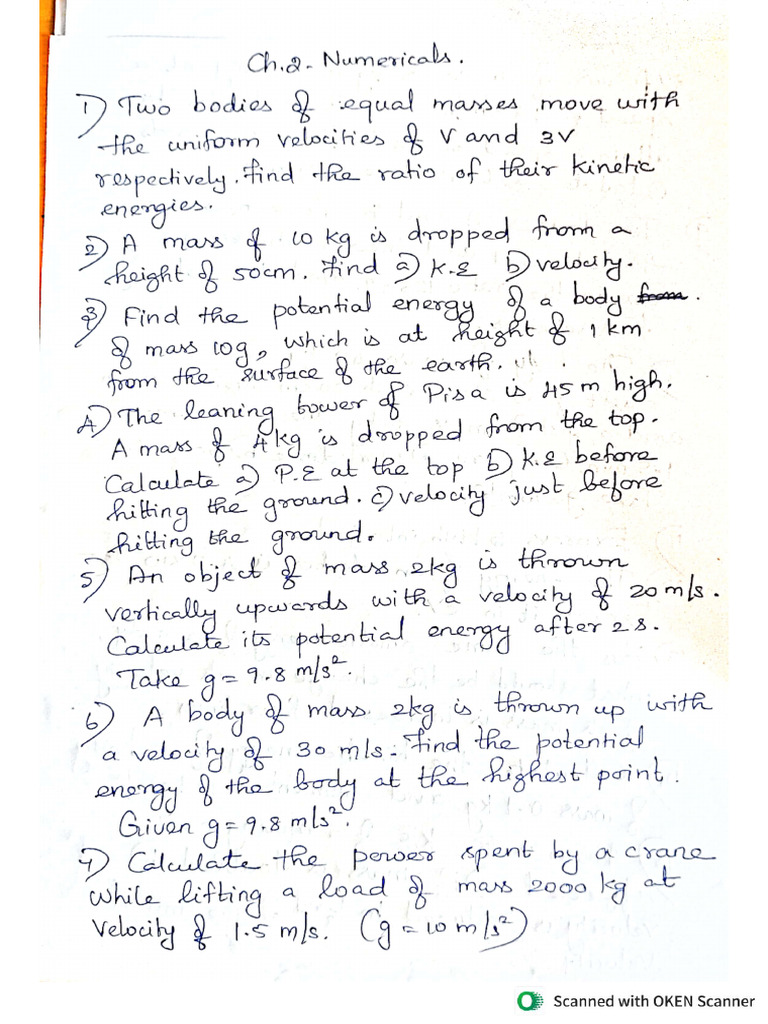 Ch.2- Numericals.
1) Two bodies of equal masses move with
the uniform velocities of V and 3V
respectively. Find the ratio of their kinetic
energies.
2) A mass of 10 kg is dropped from a
height of 50cm. Find a) K.E b) velocity.
3) Find the potential energy of a body from.
of mass 10g, which is at height of 1 km
from the surface of the earth.
4) The leaning tower of Pisa is 45 m high.
A mass of 4kg is dropped from the top.
Calculate a) P.E at the top b) K.E before
hitting the ground. c) velocity just before
hitting the ground.
5) An object of mass 2kg is thrown
vertically upwards with a velocity of 20 m/s.
Calculate its potential energy after 2s.
Take g = 9.8 m/s².
6) A body of mass 2kg is thrown up with
a velocity of 30 m/s. Find the potential
energy of the body at the highest point.
Given g = 9.8 m/s².
7) Calculate the power spent by a crane
while lifting a load of mass 2000 kg at
velocity of 1.5 m/s. (g = 10 m/s²)
Scanned with OKEN Scanner